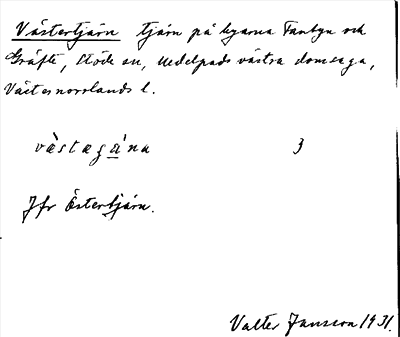 Västertjärn tjärn på byarna Fanbyn och
Gräfte, Stöde sn, Medelpads västra domsaga,
Västernorrlands l.
vàstægá̲na 3
Jfr Östertjärn.
Valter Jansson 1931.